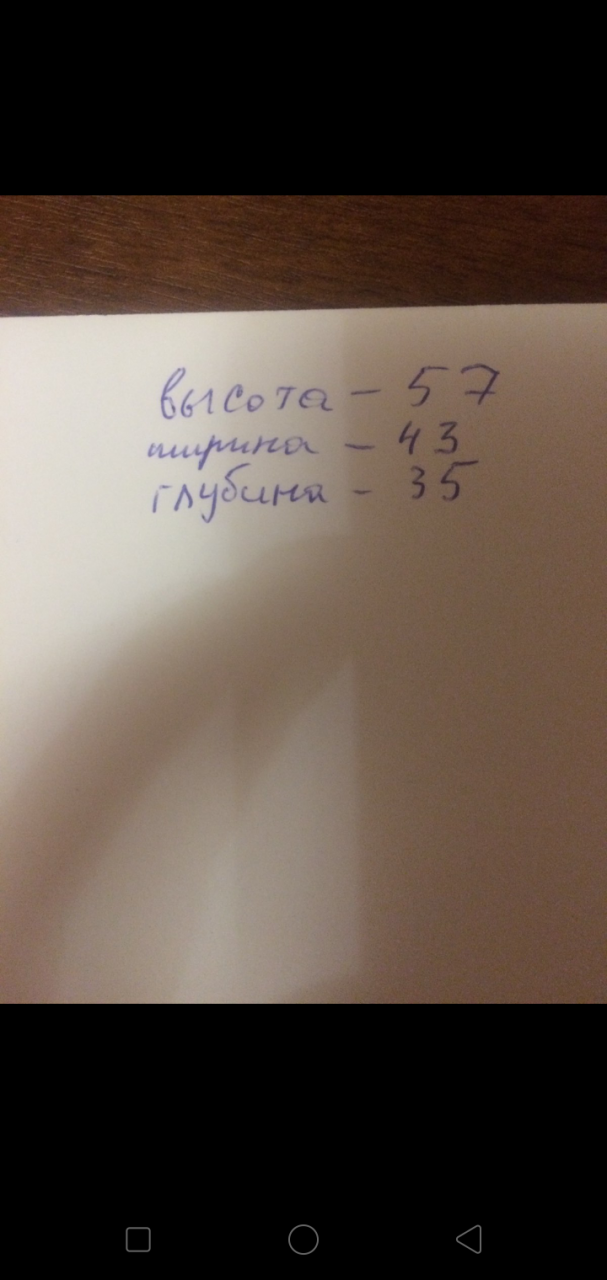 высота - 57
ширина - 43
глубина - 35